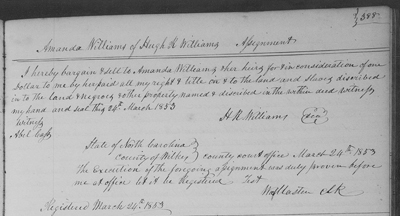 388
Amanda Williams of Hugh R Williams Assignment
I hereby bargain & sell to Amanda Williams & her heirs for & in consideration of one
Dollar to me by her paid all my right & title in & to the land and slaves discribed
in to the land & negroes & other property named & discribed in the within deed witness
my hand and seal this 24th March 1853
Witness H R Williams Seal
Abel
State of North Carolina
County of Wilkes county court office March 24th 1853
The Execution of the foregoing assignment was duly proven before
me at office let it be Registered Test
Clk
Registered March 24th 1853